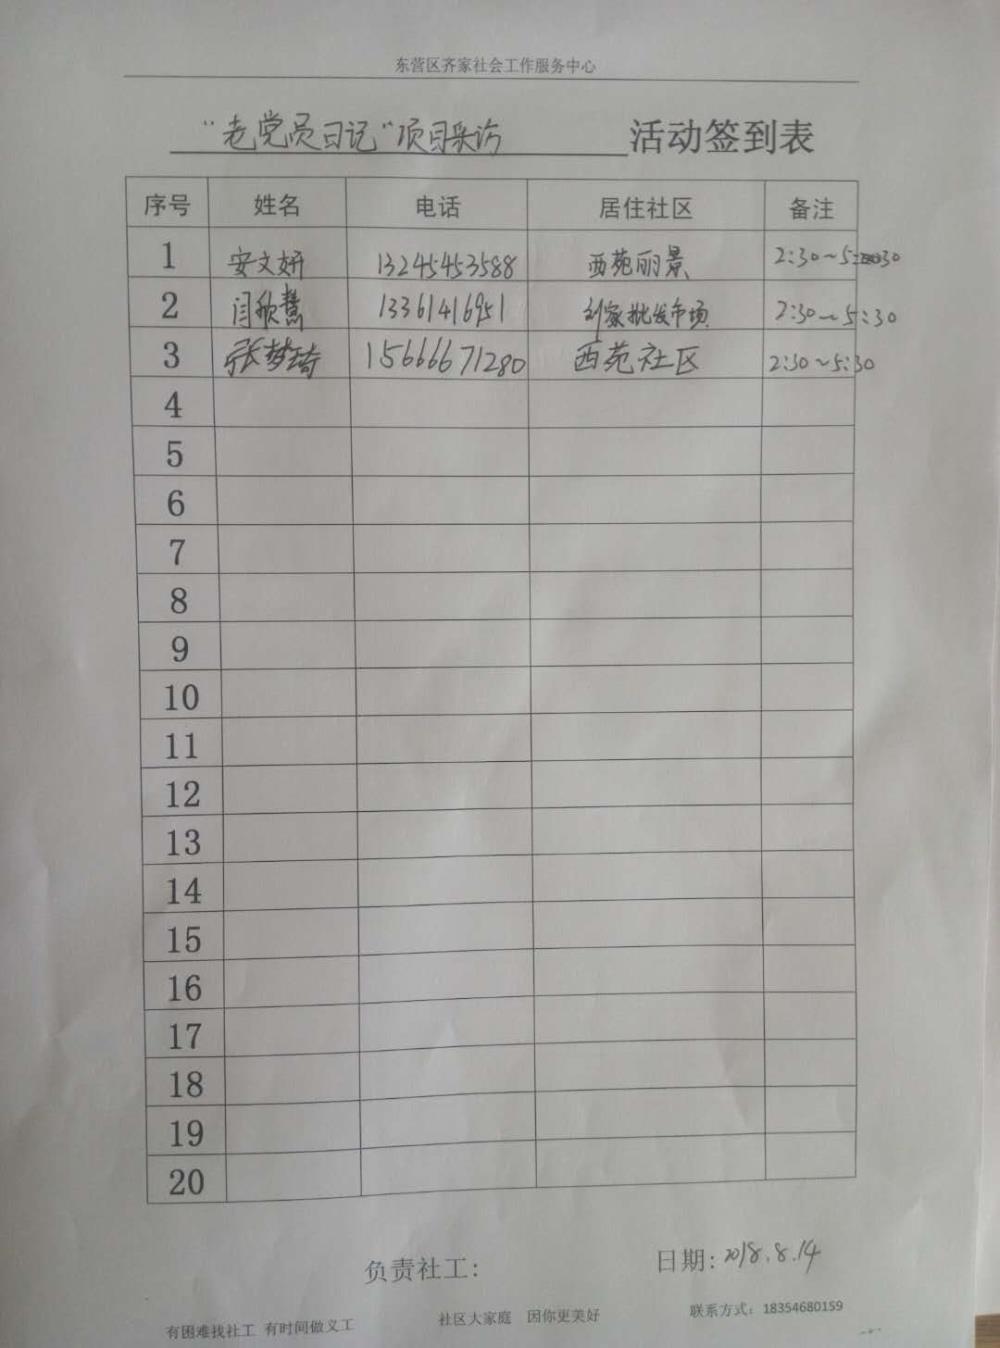 东营区齐家社会工作服务中心
“老党员日记”项目采访 活动签到表
序号 姓名 电话 居住社区 备注
1 安文妍 13245453588 西苑丽景 2:30~5:30
2 闫欣慧 13361416951 刘家批发市场 2:30~5:30
3 张梦琦 15666671280 西苑社区 2:30~5:30
4
5
6
7
8
9
10
11
12
13
14
15
16
17
18
19
20
负责社工： 日期：2018.8.14
有困难找社工 有时间做义工 社区大家庭 因你更美好 联系方式：18354680159